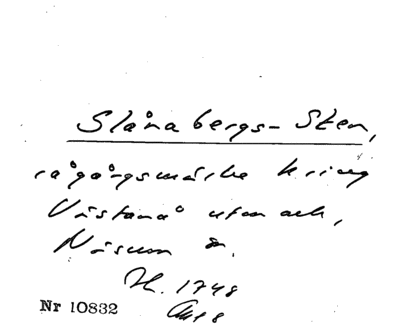 Slåna bergs-Sten,
rågångsmärke kring
Västanå utmark,
Näsum sn.
H. 1748
Nr 10832